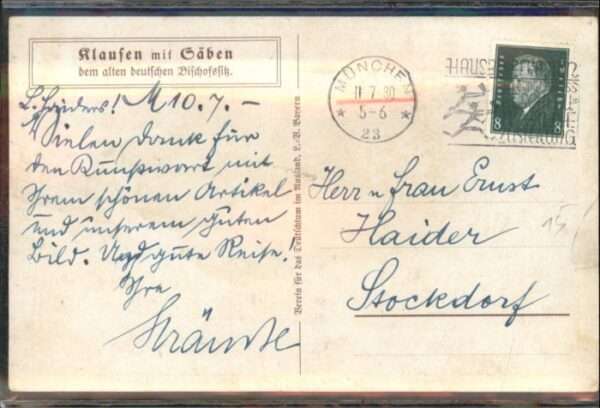 Klausen mit Säben
dem alten deutschen Bischofssitz.
L. Haiders! M 10.7.–
Vielen Dank für
den Kunstwart mit
Ihrem schönen Artikel
und unserem guten
Bild. Und gute Reise!
Ihre
Verein für das Deutschtum im Ausland, L.-V. Bayern
MÜNCHEN
11.7.30
5-6
* 23 *
8 8
Herr u Frau Ernst
Haider
Stockdorf
15